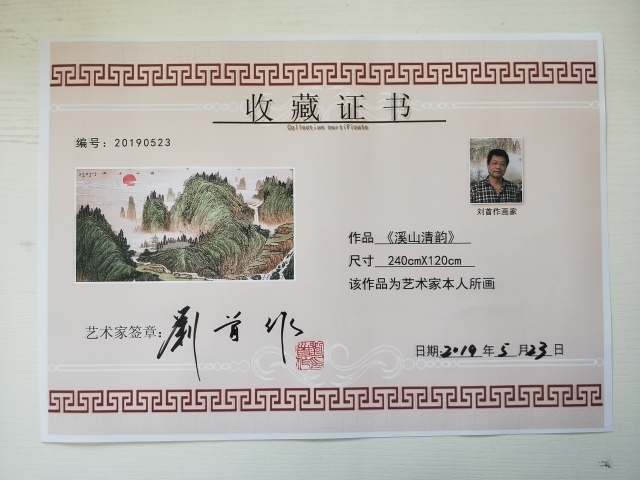 收藏证书
Collection certificate
编号：20190523
刘首作画家
作品 《溪山清韵》
尺寸 240cmX120cm
该作品为艺术家本人所画
艺术家签章：劉首作
日期：2019年5月23日